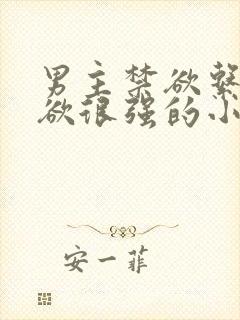 男主禁欲系
欲很强的小
安一菲